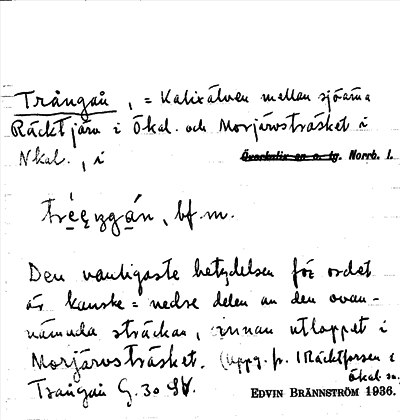 Trångån, = Kalixälven mellan sjöarna
Räcktjärv i Ökal. och Morjärvsträsket i
Nkal., i Överkalix sn o. tg. Norrb. l.
bf. m.
Den vanligaste betydelsen för ordet
är kanske = nedre delen av den ovan-
nämnda sträckan, innan utloppet i
Morjärvsträsket. (Uppg. fr. 1 Räcktforsen i
Ökal. sn.
Trångån G. 30
EDVIN BRÄNNSTRÖM 1936.